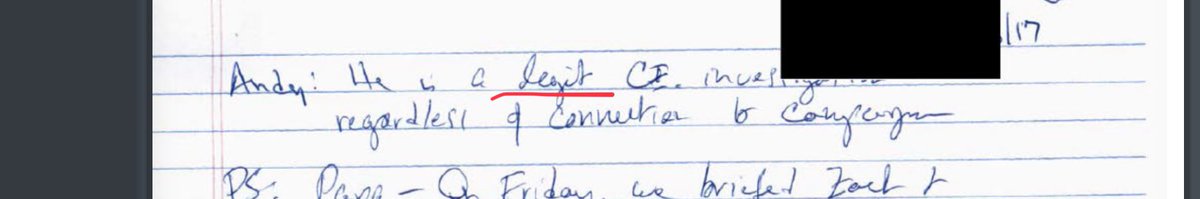 /17
Andy: He is a legit CI. investigation
regardless of connection to campaign
PS: Papa – On Friday, we briefed Zach &